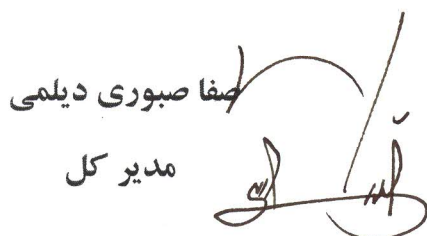 صفا صبوری دیلمی
مدیر کل